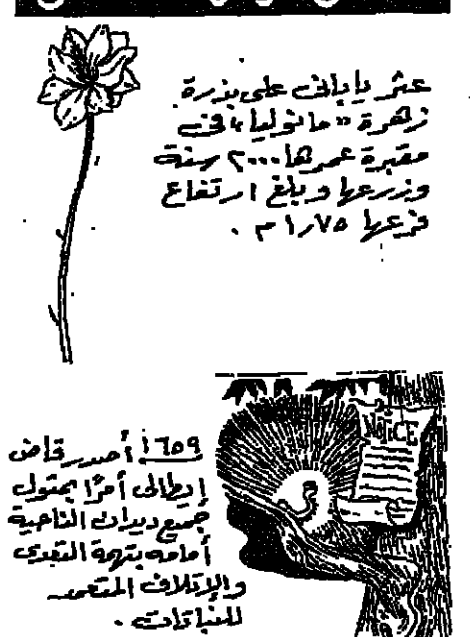 عثر ياباني على بذرة
زهرة «مانوليا» في
مقبرة عمرها ٢٠٠٠ سنة
وزرعها وبلغ ارتفاع
فرعها ١٫٧٥ م .
NOTICE
١٦٥٩ أصدر قاض
إيطالي أمرًا بمثول
جميع ديدان الناحية
أمامه بتهمة التعدي
والإتلاف المتعمد
للنباتات .